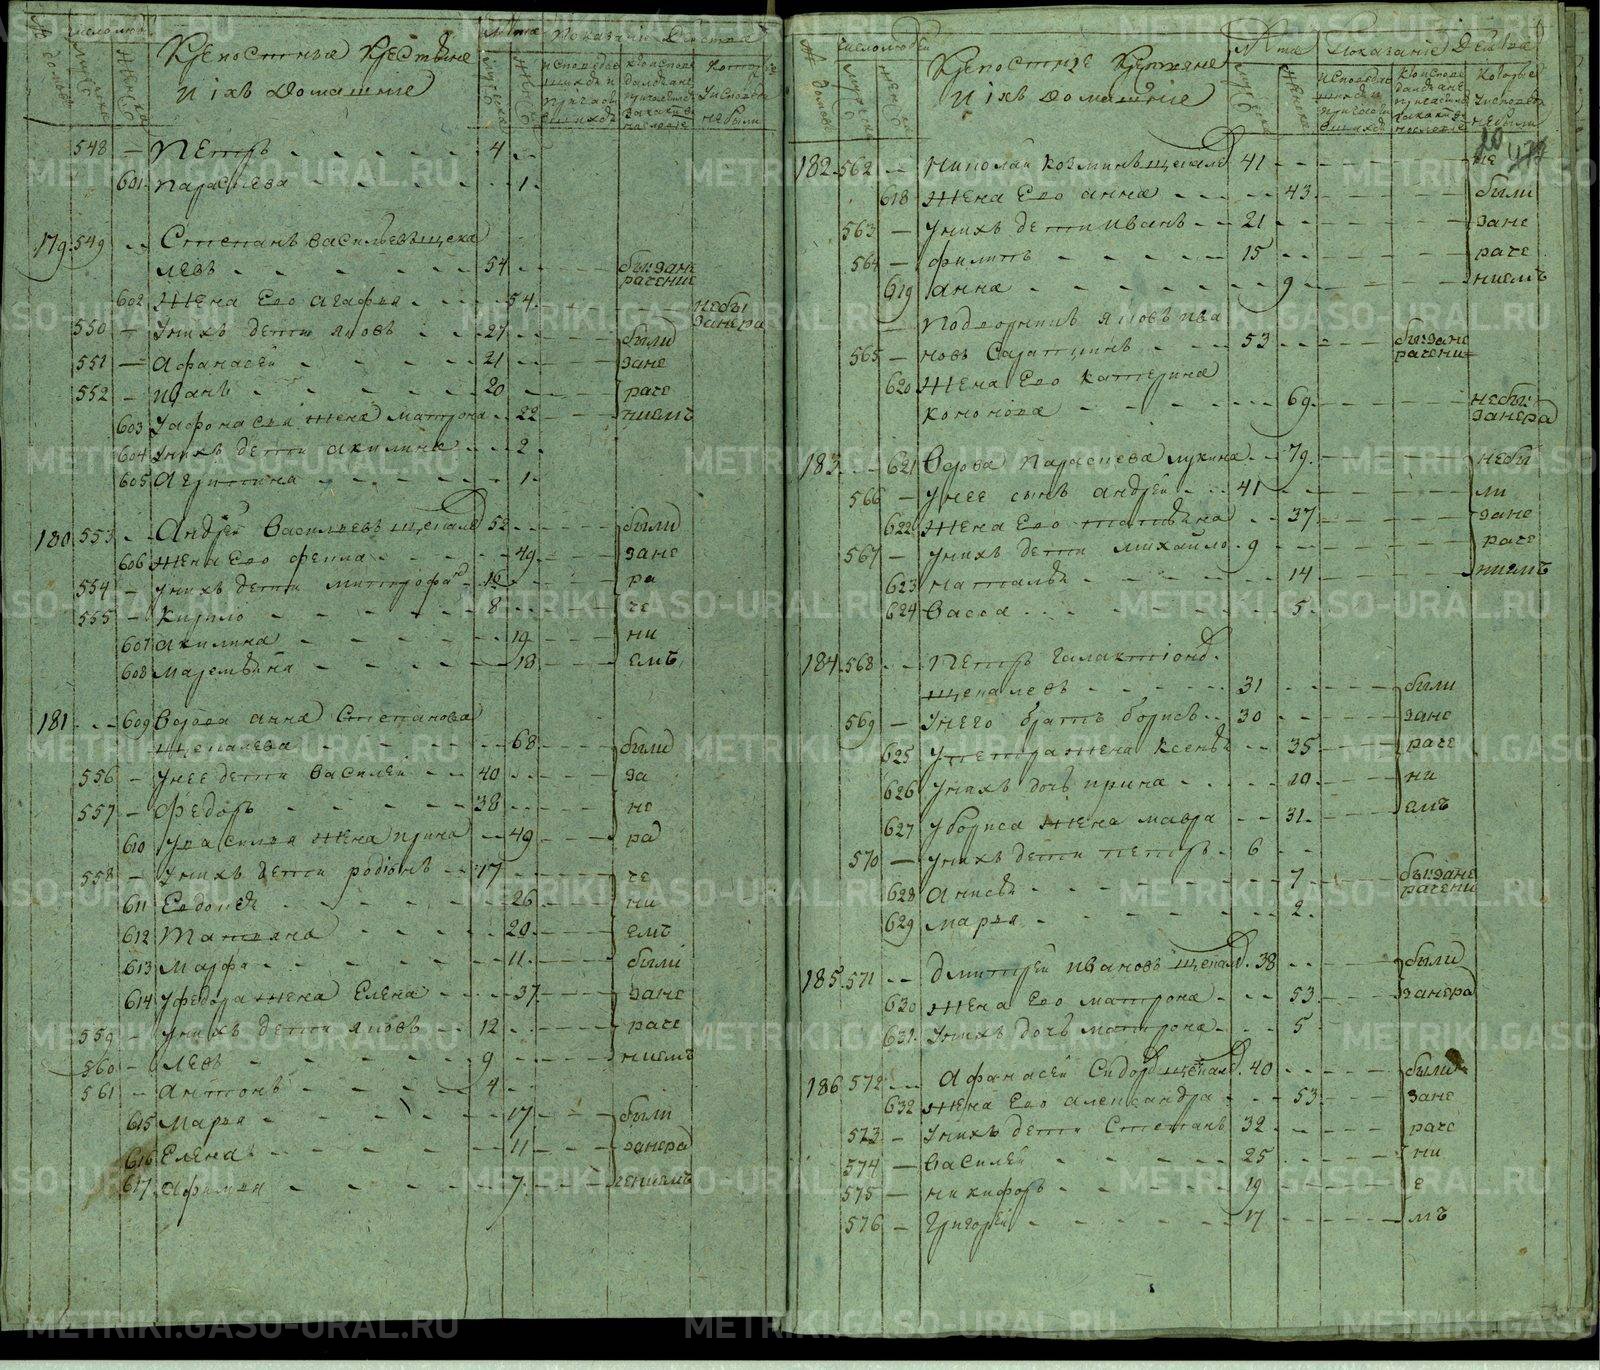 число люд
№ домовъ
мужеска
женска
Крепостныя Крестьяне
и ихъ домашние
Лета
мужеска
женска
Показание действа
548 — Петръ 4
601 Параскева 1
179 549 Степанъ Васильевъ щепа
левъ 54 бы: зане
рачение
602 Жена Его Агафья 54 небы
занера
550 — У нихъ дети Яковъ 27 были
551 — Афанасей 21 зане
552 — Иванъ 20 раче
603 У Афонасья жена Матрона 22 ниемъ
604 У нихъ дети Акилина 2
605 Агрипина 1
180 553 Андрей Васильевъ щепале 52 были
606 Жена Его Фекла 49 зане
554 — У нихъ дети Митрофан 16 ра
555 — Кирило 8 че
607 Акилина 19 ни
608 Маремьяна 18 емъ
181 609 Вдова Анна Степанова
щепалева 68 были
556 — У нее дети Василей 40 за
557 — Федоръ 38 не
610 У Василья жена Ирина 49 ра
558 — У нихъ дети Родионъ 17 че
611 Евдокея 26 ни
612 Татьяна 20 емъ
613 Марфа 11 были
614 У Федора жена Елена 37 зане
559 — У нихъ дети Яковъ 12 раче
560 — Левъ 9 ниемъ
561 — Антонъ 4
615 Марья 17 были
616 Елена 11 занера
617 Афимия 7 чениемъ
число людей
№ домовъ
мужеска
женска
Крепостные Крестьяне
и ихъ домашние
Лета
мужеска
женска
Показание Действа
Которые
у исповеди
не были
182 562 Николай Козминъ щепале 41 не
618 Жена Его Анна 43 были
563 — У нихъ дети Иванъ 21 зане
564 — Филипъ 15 раче
619 Анна 9 ниемъ
Подворникъ Яковъ Ива
565 — новъ Сарапулинъ 53 бы: зане
рачени
620 Жена Его Катерина
Кононова 69 небы:
занера
183 621 Вдова Параскева Лукина 79 небы
566 — У нее сынъ Андрей 41 ли
622 Жена Его Татьяна 37 зане
567 — У нихъ дети Михайло 9 раче
623 Наталья 14 ниемъ
624 Васса 5
184 568 Петръ Галактионов
щепалевъ 31 были
569 — У него братъ Борисъ 30 зане
625 У Петра жена Ксенья 35 раче
626 У нихъ дочь Ирина 10 ни
627 У Бориса жена Мавра 31 емъ
570 — У нихъ дети Петръ 6
628 Анисья 7 бы: зане
рачени
629 Марья 2
185 571 Дмитрей Ивановъ щепале 38 были
630 Жена Его Матрона 53 занера
631 У нихъ дочь Матрона 5
186 572 Афанасей Сидоров щепале 40 были
632 Жена Его Александра 53 зане
573 — У нихъ дети Степанъ 32 раче
574 — Василей 25 ни
575 — Никифоръ 19 е
576 — Григорей 17 мъ
METRIKI.GASO-URAL.RU